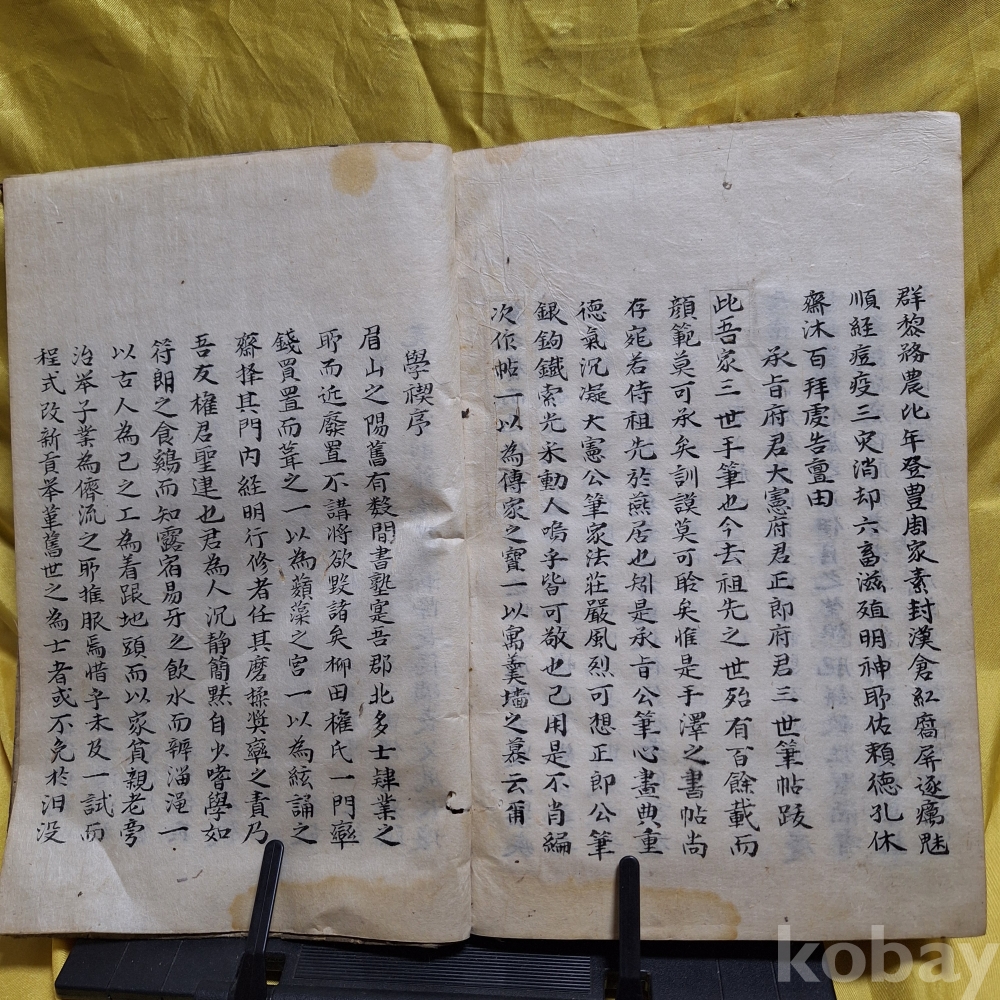 群黎務農比年登豊周家素封漢倉紅腐屏逐癘魃
順経痘疫三灾消却六畜滋殖明神耶佑賴德孔休
齋沐百拜虔告亶田
承旨府君大憲府君正郎府君三世筆帖跋
此吾家三世手筆也今去祖先之世殆有百餘載而
顔範莫可承矣訓謨莫可聆矣惟是手澤之書帖尚
存宛若侍祖先於燕居也矧是承旨公筆心畫典重
德氣沉凝大憲公筆家法莊嚴風烈可想正郎公筆
銀鉤鐵索光采動人嗚乎皆可敬也已用是不肖編
次作帖一以為傳家之寶一以寓羹墻之慕云爾
學禊序
眉山之陽舊有數間書塾寔吾郡北多士肄業之
耶而近廢置不講將欲毁諸矣柳田權氏一門
錢買置而葺之一以為蘋藻之宮一以為絃誦之
齋擇其門內経明行修者任其磨揉奬之責乃
吾友權君聖建也君為人沉静簡默自少嗜學如
符朗之食鷄而知露宿易牙之飲水而辨淄渑一
以古人為己之工為着跟地頭而以家貧親老旁
治举子業為儕流之耶推服焉惜乎未及一試而
程式改新貢举革舊世之為士者或不免於汨没
kobay